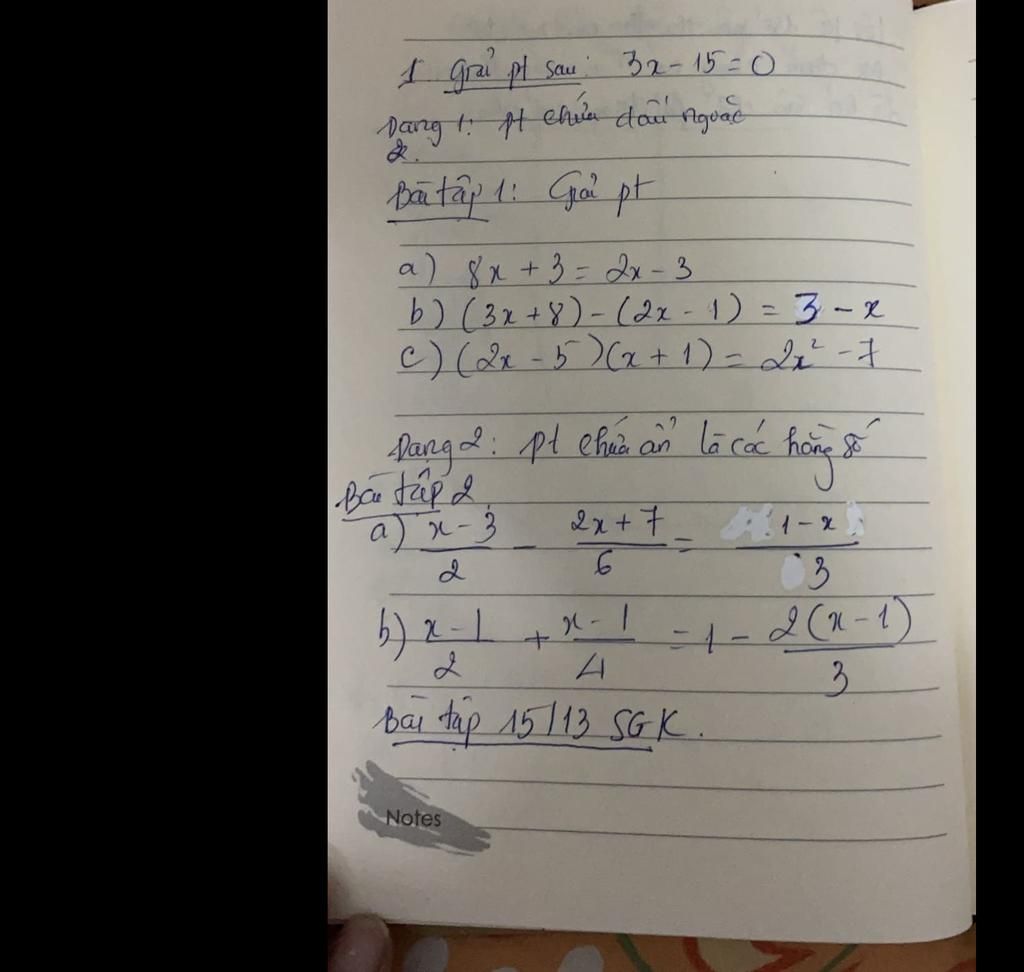 1. Giải pt sau: 3x - 15 = 0
Dạng 1: pt chứa dấu ngoặc
2.
Bài tập 1: Giải pt
a) 8x + 3 = 2x - 3
b) (3x + 8) - (2x - 1) = 3 - x
c) (2x - 5)(x + 1) = 2x² - 7
Dạng 2: pt chứa ẩn là các hằng số
Bài tập 2
a) \frac{x - 3}{2} - \frac{2x + 7}{6} = \frac{1 - x}{3}
b) \frac{x - 1}{2} + \frac{x - 1}{4} = 1 - \frac{2(x - 1)}{3}
Bài tập 15/13 SGK.
Notes